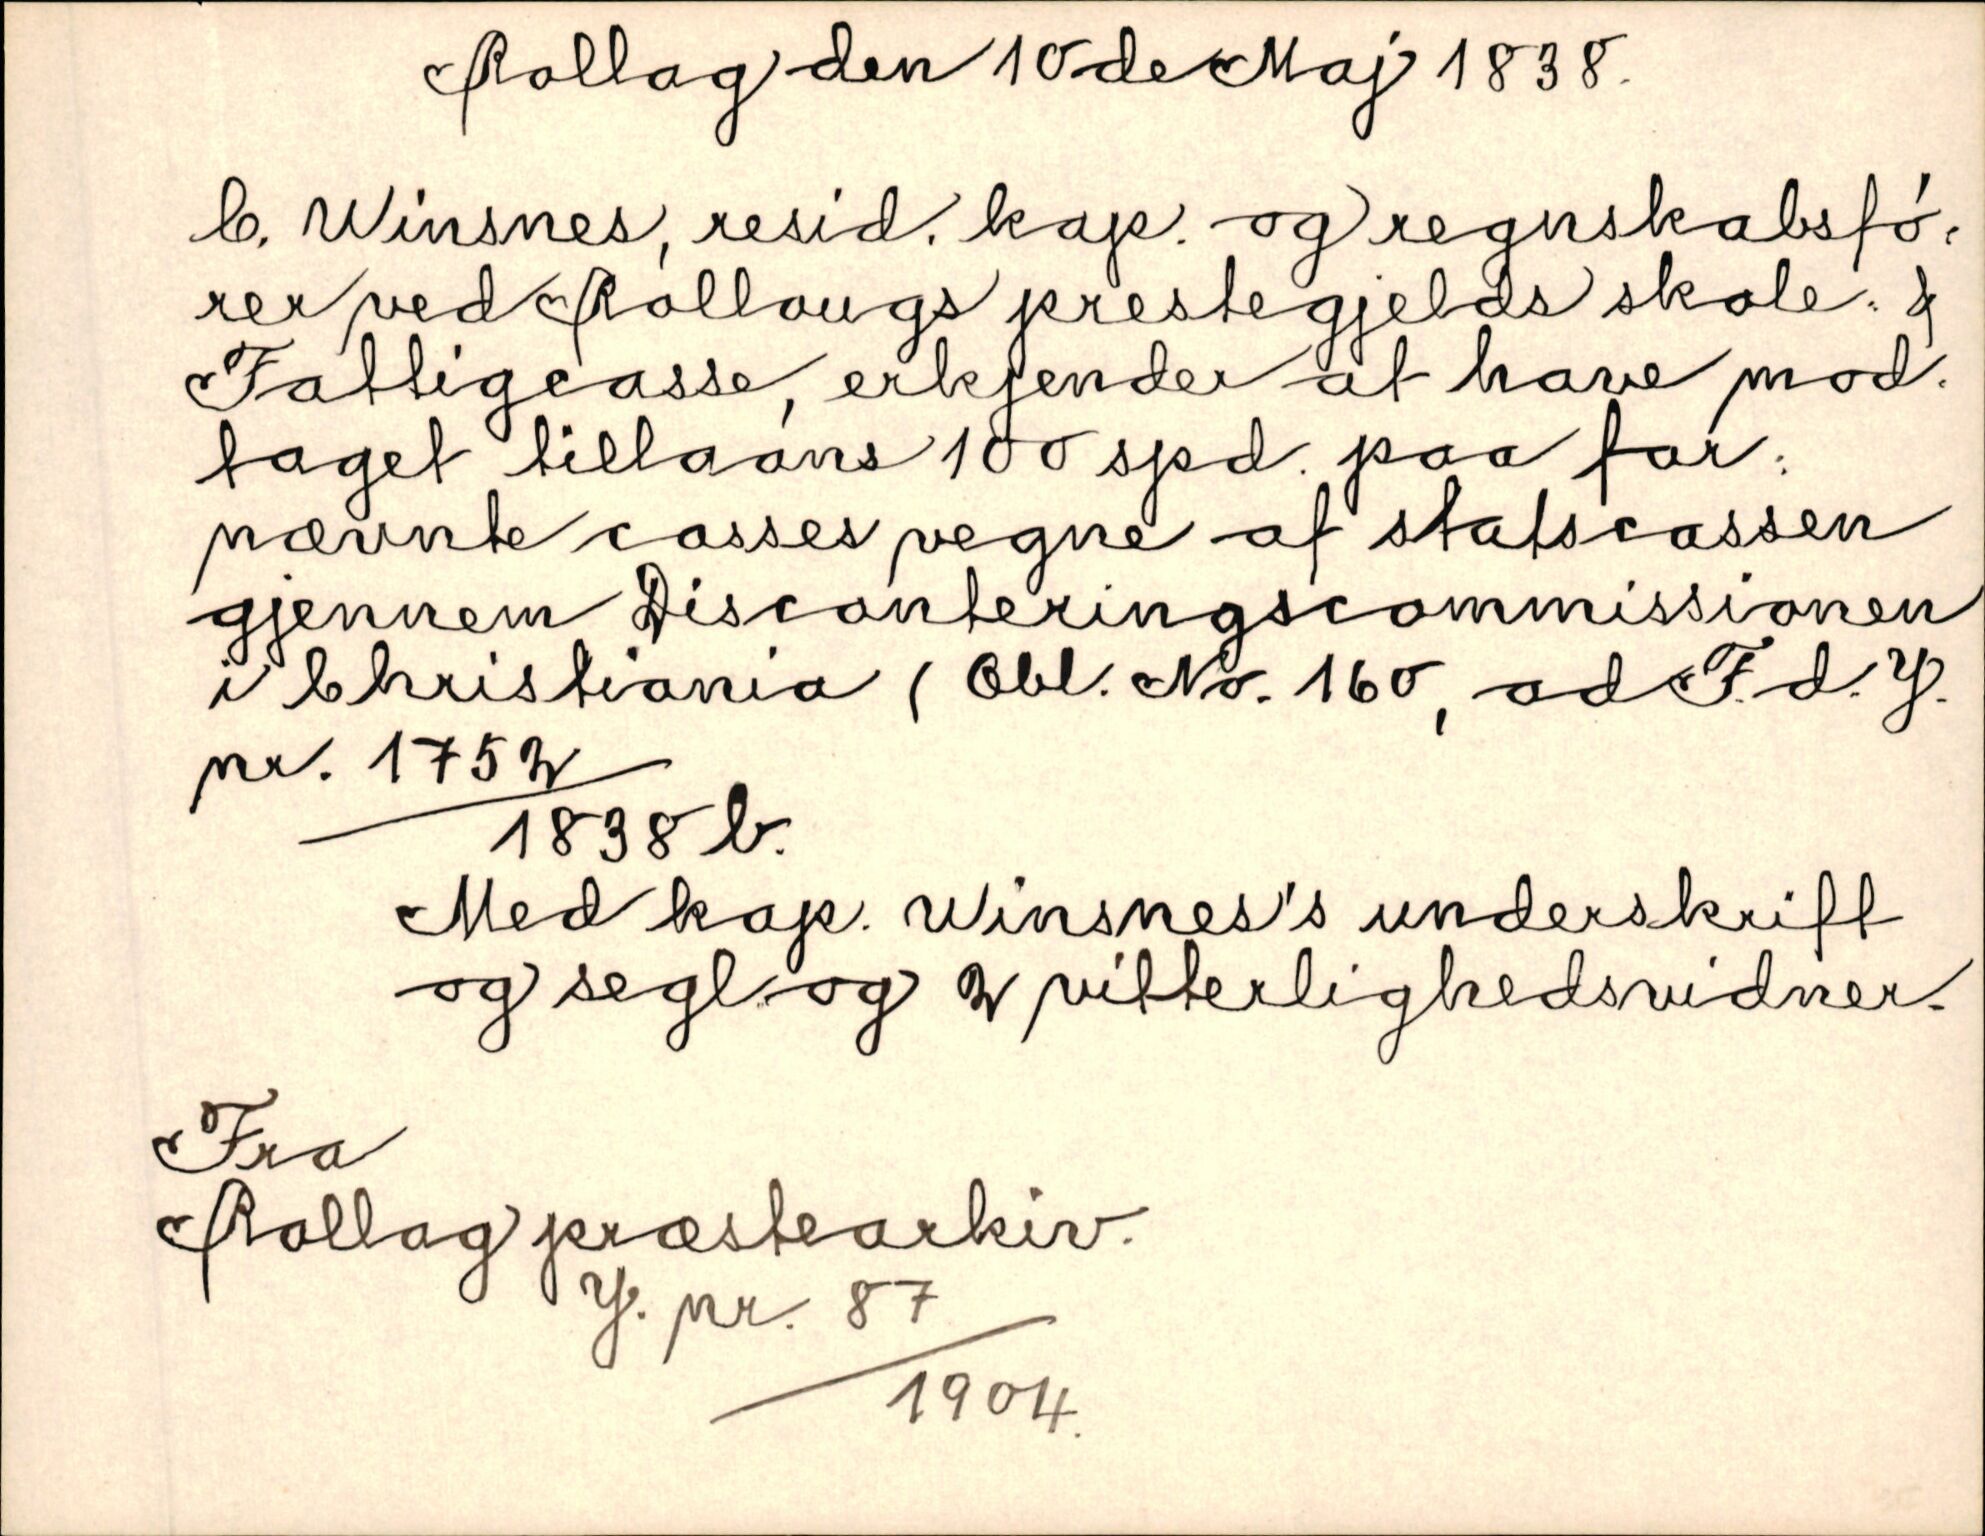 Rollag den 10de Maj 1838.
C. Winsnes, resid. kap. og regnskabsfó-
rer ved Rollougs prestegjelds skole- &
Fattigcasse, erkjender at have mod-
taget tillaáns 100 spd. paa for-
nævnte casses vegne af statscassen
gjennem Disconteringscommissionen
i Christiania ( Obl. No. 160, ad F. d. Y.
nr. 1752
1838 b.
Med kap. Winsnes's underskrift
og segl og 2 vitterlighedsvidner.
Fra
Rollag præstearkiv.
Y. nr. 87
1904.